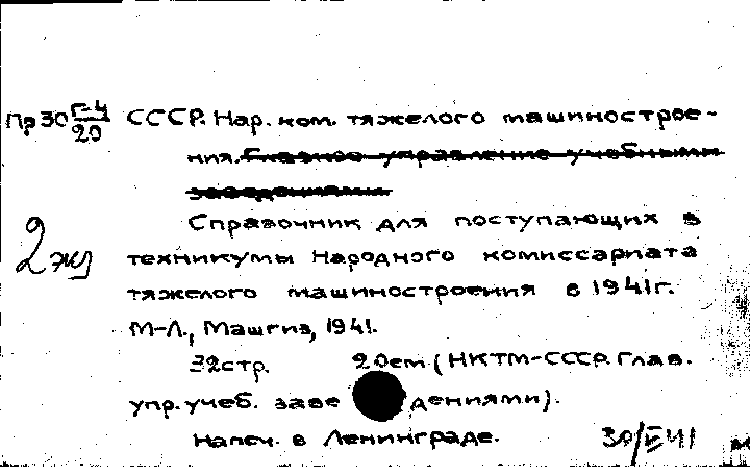 Пр 30 Г-4/20 СССР. Нар. ком. тяжелого машинострое-
ния. Главное управление учебными
заведениями.
Справочник для поступающих в
2 экз
техникумы Народного комиссариата
тяжелого машиностроения в 1941г.
М-Л., Машгиз, 1941.
32стр. 20см. (НКТМ-СССР. Глав.
упр. учеб. заведениями).
Напеч. в Ленинграде.